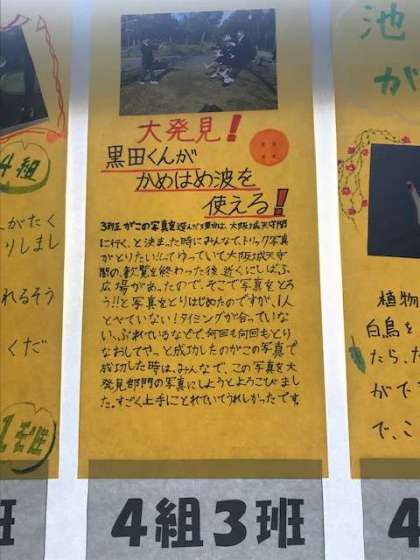 大発見！
黒田くんが
かめはめ波を
使える！
3班がこの写真を選んだ理由は、大阪城天守閣
に行く、と決まった時にみんなで、トリック写真
がとりたい!!ってゆっていて大阪城天守
閣の、観覧を終わった後、近くにしばふ
広場があったので、そこで写真をとろ
う!!と写真をとりはじめたのですが、1人
とべていない!タイミングが合ってい
ない、ぶれているなどで、何回も何回もとり
なおしてやっと成功したのがこの写真で
成功した時は、みんなで、この写真を大
発見部門の写真にしようとよろこびまし
た。すごく上手にとれていてうれしかったです。
4組3班
4組
がたく
りしまし
れるそう
くだ
班
池
が
植物
白鳥を
たら、た
がで
で、こ
4